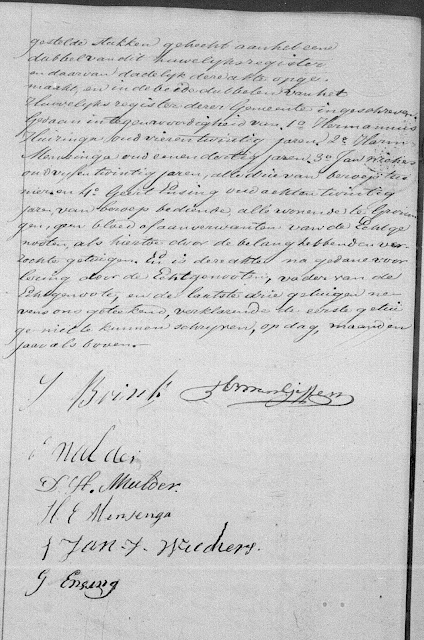 gestelde stukken gehecht aan het eene
dubbel van dit huwelijksregister
en daarvan dadelijk deze akte opge-
maakt, en in de beide dubbelen van het
Huwelijksregister dezer Gemeente ingeschreven.
Gedaan in tegenwoordigheid van 1o Hermannus
Huizinga oud vierentwintig jaren, 2o Harm
Mensinga oud eenendertig jaren, 3o Jan Wichers
oud vijfentwintig jaren, alle drie van beroep
en 4o Geert Ensing oud achtentwintig
jaren, van beroep bediende, alle wonende te Gronin-
gen, geen bloed of aanverwanten van de Echtge-
nooten, als hiertoe door de belanghebbenden ver-
zochte getuigen. En is deze akte na gedane voor-
lezing door de Echtgenooten, vader van de
Echtgenoote, en de laatste drie getuigen ne-
vens ons geteekend, verklarende de eerste getui-
ge niet te kunnen schrijven, op dag, maand en
jaar als boven.
J Brink
Mulder
H. Mulder.
H E Mensenga
Jan Wichers.
G Ensing